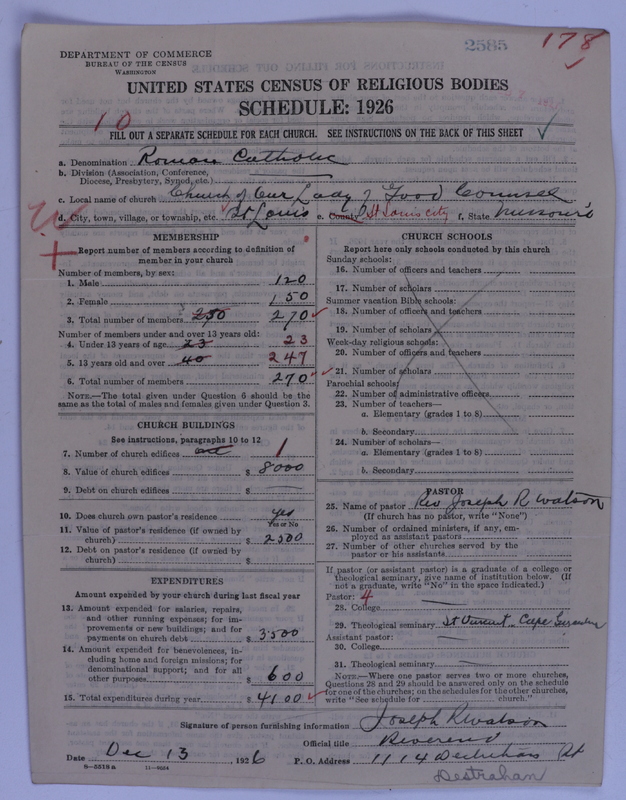 2585
178
DEPARTMENT OF COMMERCE
BUREAU OF THE CENSUS
WASHINGTON
UNITED STATES CENSUS OF RELIGIOUS BODIES
SCHEDULE: 1926
10
FILL OUT A SEPARATE SCHEDULE FOR EACH CHURCH. SEE INSTRUCTIONS ON THE BACK OF THIS SHEET
a. Denomination Roman Catholic
b. Division (Association, Conference,
Diocese, Presbytery, Synod, etc.)
c. Local name of church Church of Our Lady of Good Counsel
d. City, town, village, or township, etc. St Louis e. County St Louis city f. State Missouri
MEMBERSHIP
Report number of members according to definition of
member in your church
Number of members, by sex:
1. Male 120
2. Female 150
3. Total number of members 250 270
Number of members under and over 13 years old:
4. Under 13 years of age 23 23
5. 13 years old and over 40 247
6. Total number of members 270
NOTE.—The total given under Question 6 should be the
same as the total of males and females given under Question 3.
CHURCH BUILDINGS
See instructions, paragraphs 10 to 12
7. Number of church edifices 1
8. Value of church edifices $ 8000
9. Debt on church edifices $
10. Does church own pastor's residence yes
Yes or No
11. Value of pastor's residence (if owned by
church) $ 2500
12. Debt on pastor's residence (if owned by
church) $
EXPENDITURES
Amount expended by your church during last fiscal year
13. Amount expended for salaries, repairs,
and other running expenses; for im-
provements or new buildings; and for
payments on church debt $ 3500
14. Amount expended for benevolences, in-
cluding home and foreign missions; for
denominational support; and for all
other purposes $ 600
15. Total expenditures during year $ 4100
CHURCH SCHOOLS
Report here only schools conducted by this church
Sunday schools:
16. Number of officers and teachers
17. Number of scholars
Summer vacation Bible schools:
18. Number of officers and teachers
19. Number of scholars
Week-day religious schools:
20. Number of officers and teachers
21. Number of scholars
Parochial schools:
22. Number of administrative officers
23. Number of teachers—
a. Elementary (grades 1 to 8)
b. Secondary
24. Number of scholars—
a. Elementary (grades 1 to 8)
b. Secondary
PASTOR
25. Name of pastor Rev Joseph R Watson
(If church has no pastor, write "None")
26. Number of ordained ministers, if any, em-
ployed as assistant pastors
27. Number of other churches served by the
pastor or his assistants
If pastor (or assistant pastor) is a graduate of a college or
theological seminary, give name of institution below. (If
not a graduate, write "No" in the space indicated.)
Pastor: 4
28. College
29. Theological seminary St Vincent Cape Girardeau
Assistant pastor:
30. College
31. Theological seminary
NOTE.—Where one pastor serves two or more churches,
Questions 28 and 29 should be answered only on the schedule
for one of the churches; on the schedules for the other churches,
write "See schedule for church."
Signature of person furnishing information Joseph R Watson
Official title Reverend
Date Dec 13 1926 P. O. Address 1114 St
Destrahan
8—5519 a 11—9064